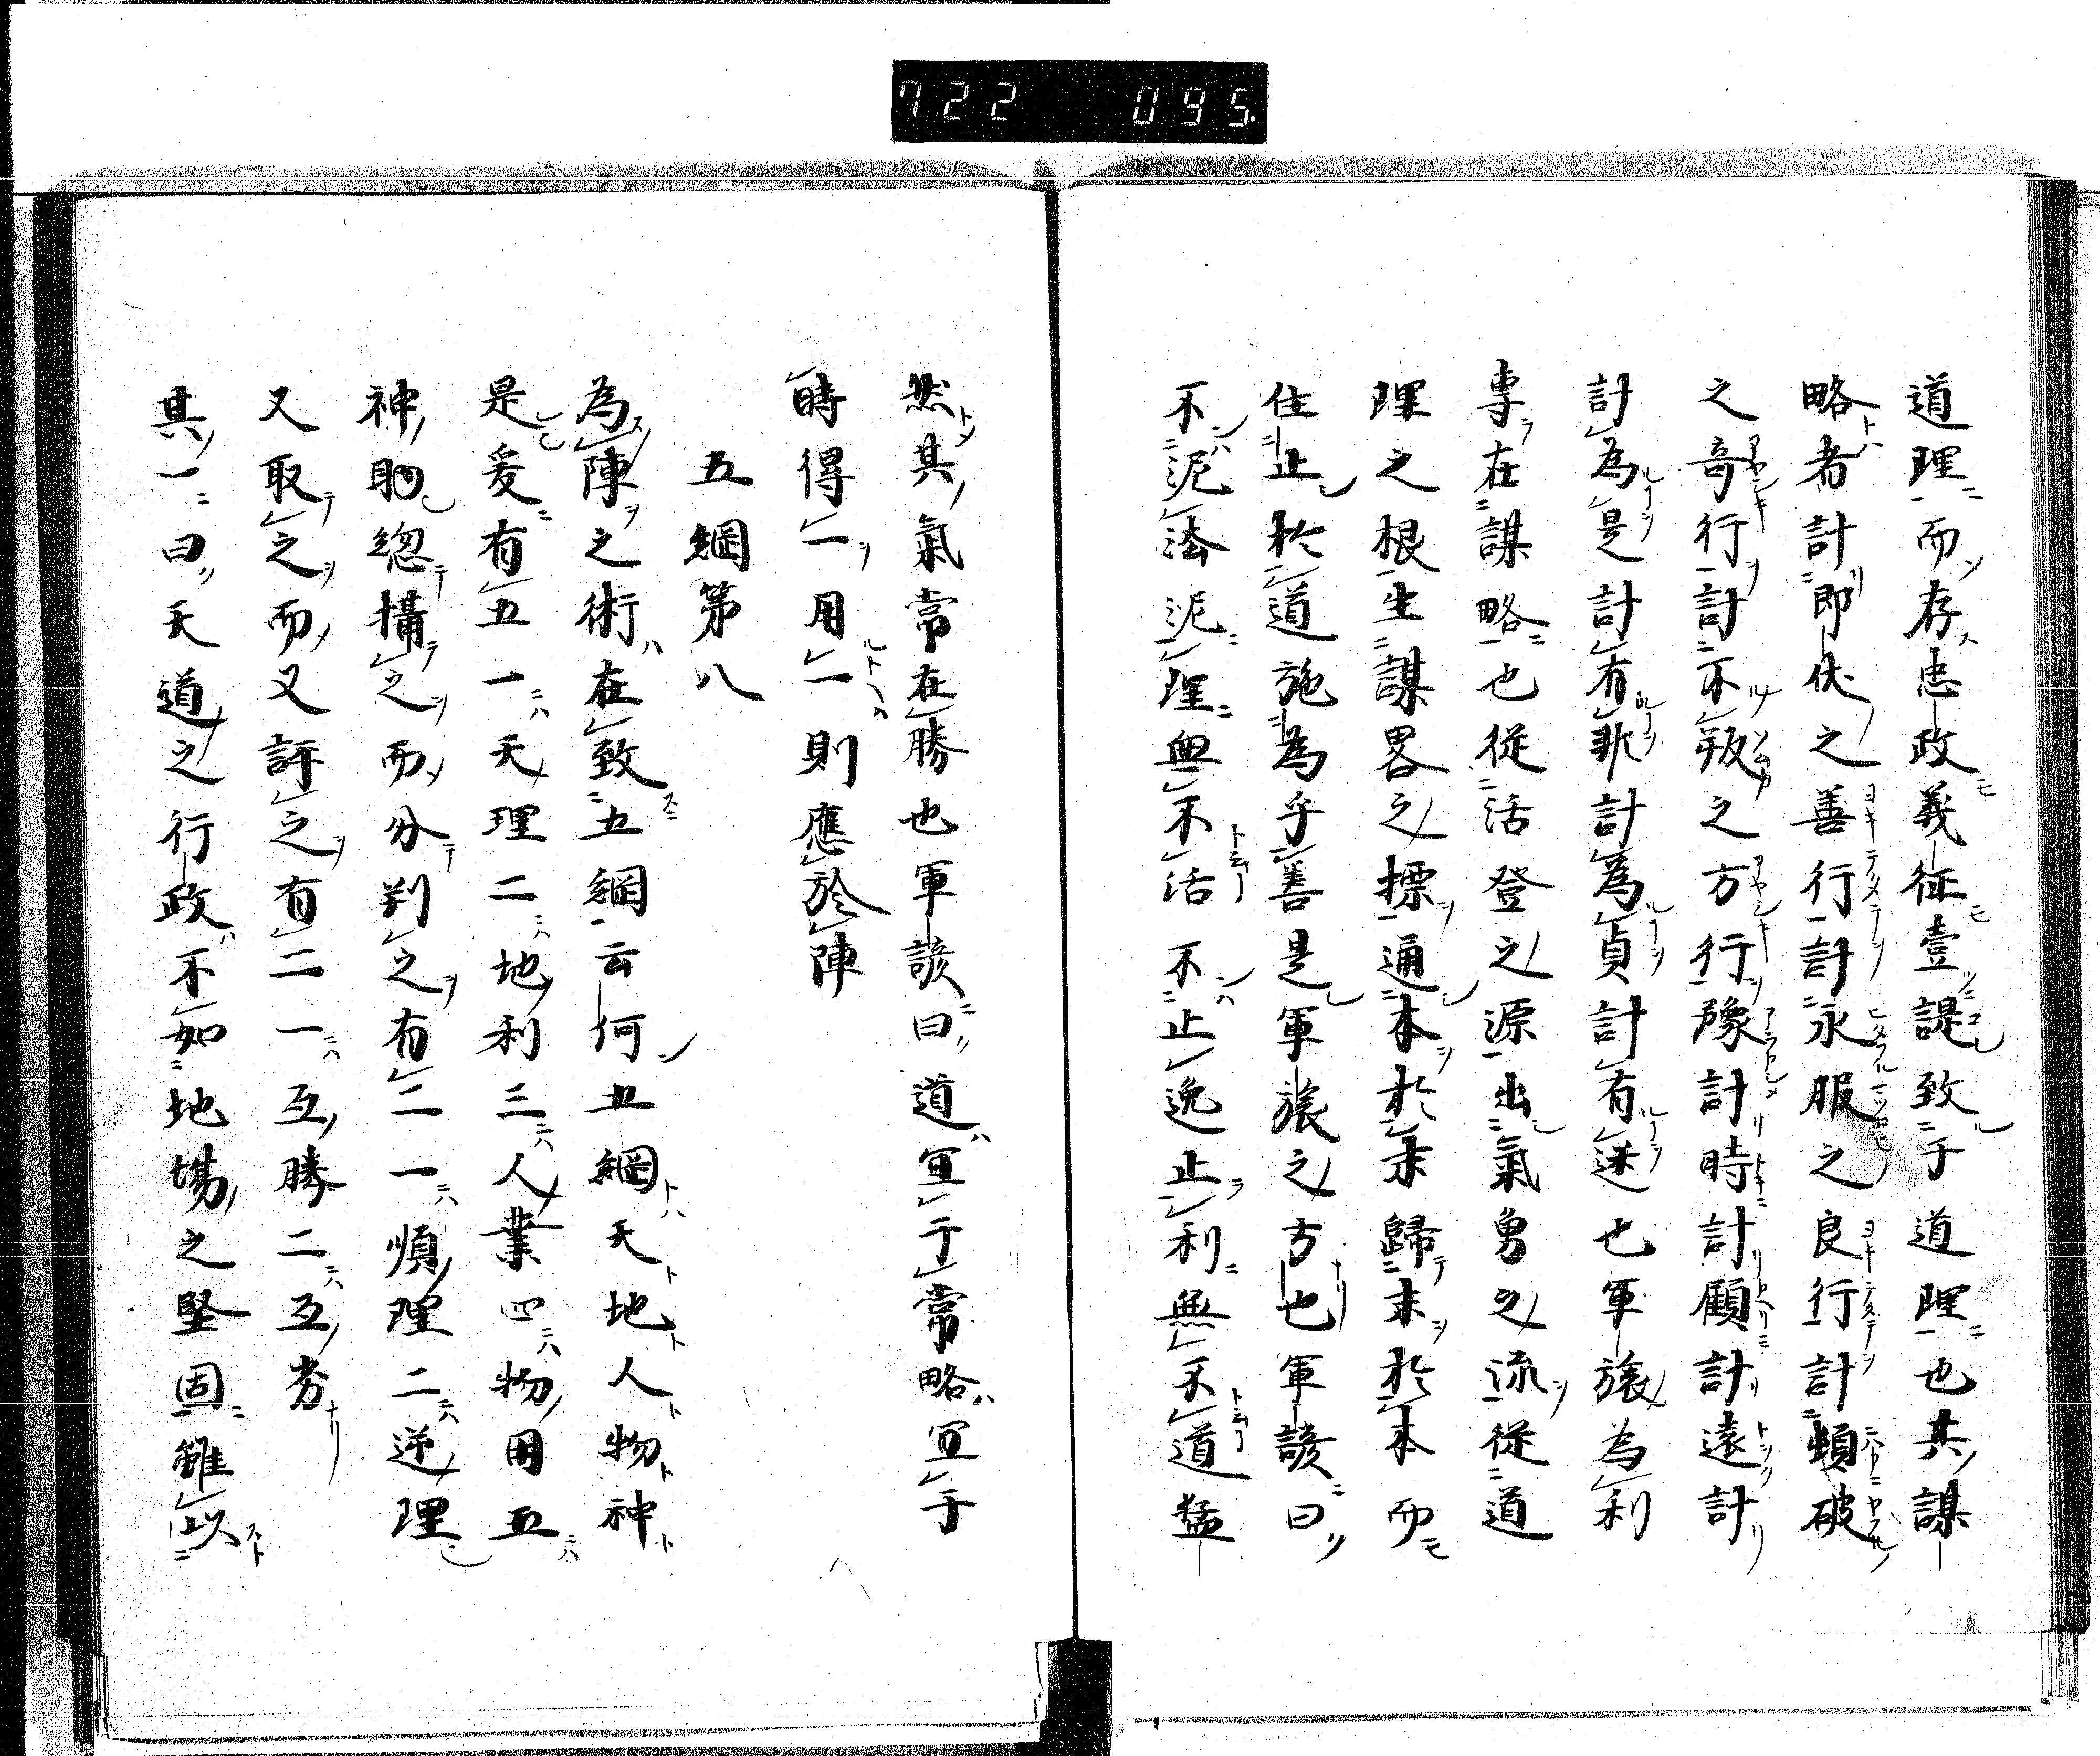 722 095
道理而存忠政義征壹諟致于道理也其謀
略者計即伏之善行計永服之良行計頓破
之奇行計不叛之方行豫計時計顧計遠計
計為是計有非計為貞計有迷也軍旅為利
專在謀略也従活登之源出氣勇之流従道
理之根生謀畧之標通本於末歸末於本而
住止於道施為乎善是軍旅之方也軍諺曰
不泥法泥理無不活不止逸止利無不道猛
然其氣常在勝也軍諺曰道宜于常略宜于
時得一用一則應於陣
五綱第八
為陣之術在致五綱云何五綱天地人物神
是爰有五一天理二地利三人業四物用五
神助總攝之而分判之有二一順理二逆理
又取之而又評之有二一互勝二互劣
其一曰天道之行政不如地場之堅固雖以